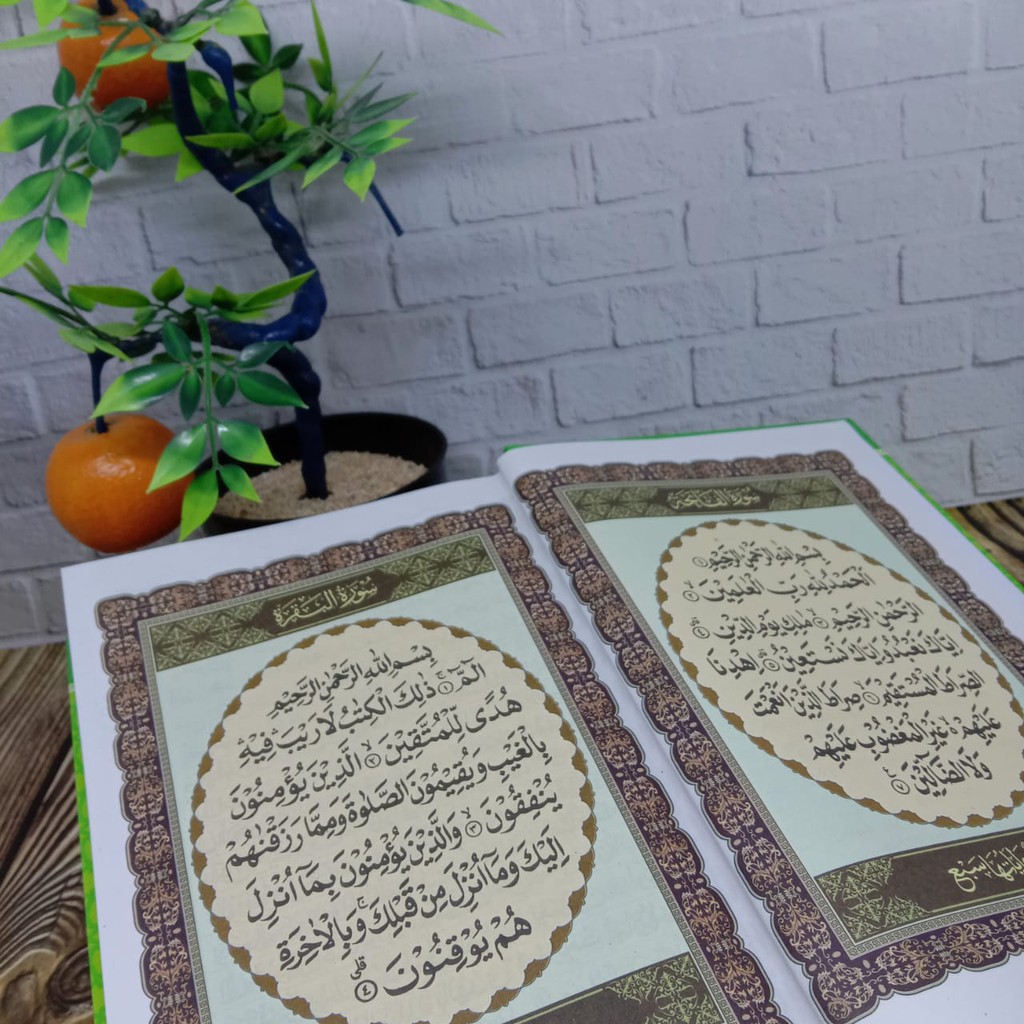 سُوْرَةُ الْفَاتِحَةِ
بِسْمِ اللّٰهِ الرَّحْمٰنِ الرَّحِيْمِ ١
اَلْحَمْدُ لِلّٰهِ رَبِّ الْعٰلَمِيْنَ ٢
الرَّحْمٰنِ الرَّحِيْمِ ٣ مٰلِكِ يَوْمِ الدِّيْنِ ٤
اِيَّاكَ نَعْبُدُ وَاِيَّاكَ نَسْتَعِيْنُ ٥ اِهْدِنَا
الصِّرَاطَ الْمُسْتَقِيْمَ ٦ صِرَاطَ الَّذِيْنَ اَنْعَمْتَ
عَلَيْهِمْ غَيْرِ الْمَغْضُوْبِ عَلَيْهِمْ
وَلَا الضَّاۤلِّيْنَ ٧
سَبْع
سُوْرَةُ الْبَقَرَةِ
بِسْمِ اللّٰهِ الرَّحْمٰنِ الرَّحِيْمِ
الۤمّۤ ١ ذٰلِكَ الْكِتٰبُ لَا رَيْبَ فِيْهِ
هُدًى لِّلْمُتَّقِيْنَ ٢ الَّذِيْنَ يُؤْمِنُوْنَ
بِالْغَيْبِ وَيُقِيْمُوْنَ الصَّلٰوةَ وَمِمَّا رَزَقْنٰهُمْ
يُنْفِقُوْنَ ٣ وَالَّذِيْنَ يُؤْمِنُوْنَ بِمَآ اُنْزِلَ
اِلَيْكَ وَمَآ اُنْزِلَ مِنْ قَبْلِكَ وَبِالْاٰخِرَةِ
هُمْ يُوْقِنُوْنَ ٤